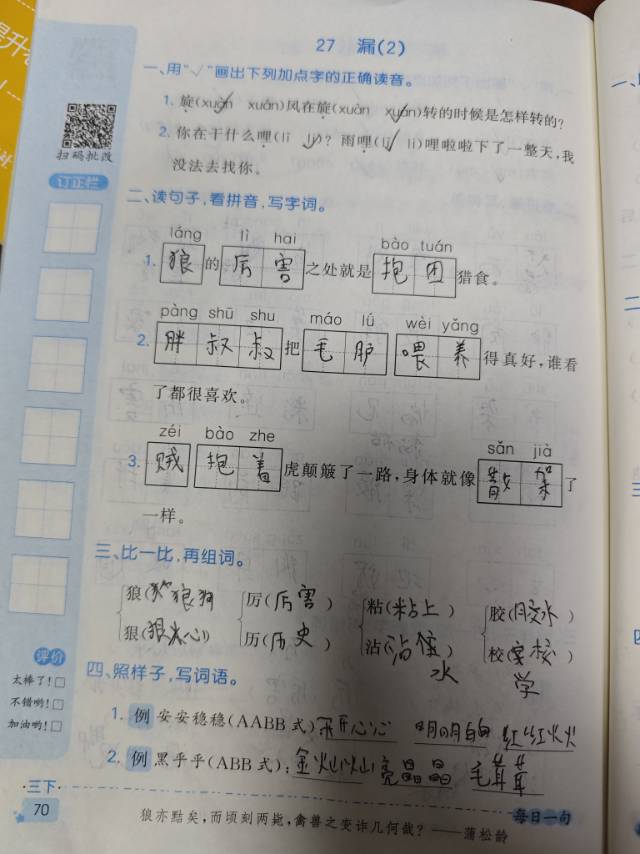 27 漏(2)
一、用“√”画出下列加点字的正确读音。
1. 旋(xuàn xuán)风在旋(xuàn xuán)转的时候是怎样转的?
2. 你在干什么哩(lī li)? 雨哩(lī li)哩啦啦下了一整天,我
没法去找你。
扫码批改
订正栏
二、读句子,看拼音,写字词。
láng lì hai bào tuán
1. 狼的厉害之处就是抱团猎食。
pàng shū shu máo lǘ wèi yǎng
2. 胖叔叔把毛驴喂养得真好,谁看
了都很喜欢。
zéi bào zhe sǎn jià
3. 贼抱着虎颠簸了一路,身体就像散架了
一样。
三、比一比,再组词。
狼(狼狗) 厉(厉害) 粘(粘上) 胶(胶水)
狠(狠心) 历(历史) 沾(沾水) 校(学校)
四、照样子,写词语。
1. 例 安安稳稳(AABB式) 开开心心 明明白白 红红火火
2. 例 黑乎乎(ABB式): 金灿灿 亮晶晶 毛茸茸
评价
太棒了!
不错哟!
加油哟!
·三下·
70
狼亦黠矣,而顷刻两毙,禽兽之变诈几何哉? ——蒲松龄
每日一句